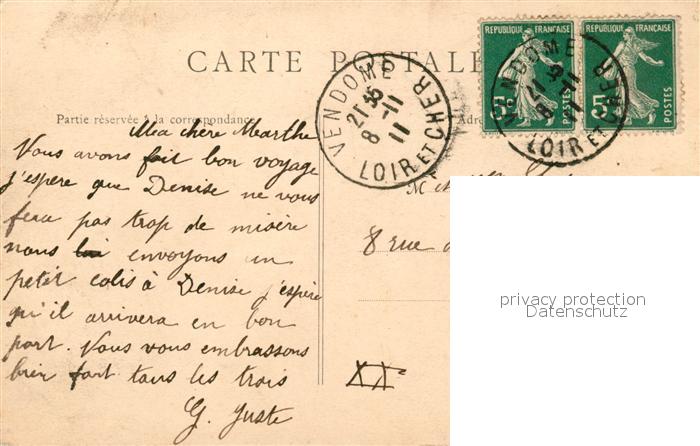 CARTE POSTALE
RÉPUBLIQUE FRANÇAISE
5c
POSTES
RÉPUBLIQUE FRANÇAISE
5c
POSTES
VENDOME
21 35
8 -11
11
LOIR ET CHER
VENDOME
8 -11
11
LOIR ET CHER
Partie réservée à la correspondance
Adre
Ma chère Marthe
Vous avons fait bon voyage
j'espère que Denise ne vous
feau pas trop de misère
nous envoyons un
petit colis à Denise j'espère
qu'il arrivera en bon
port. Vous vous embrassons
bien fort tous les trois
G. Juste
M
8 rue
XX
privacy protection
Datenschutz